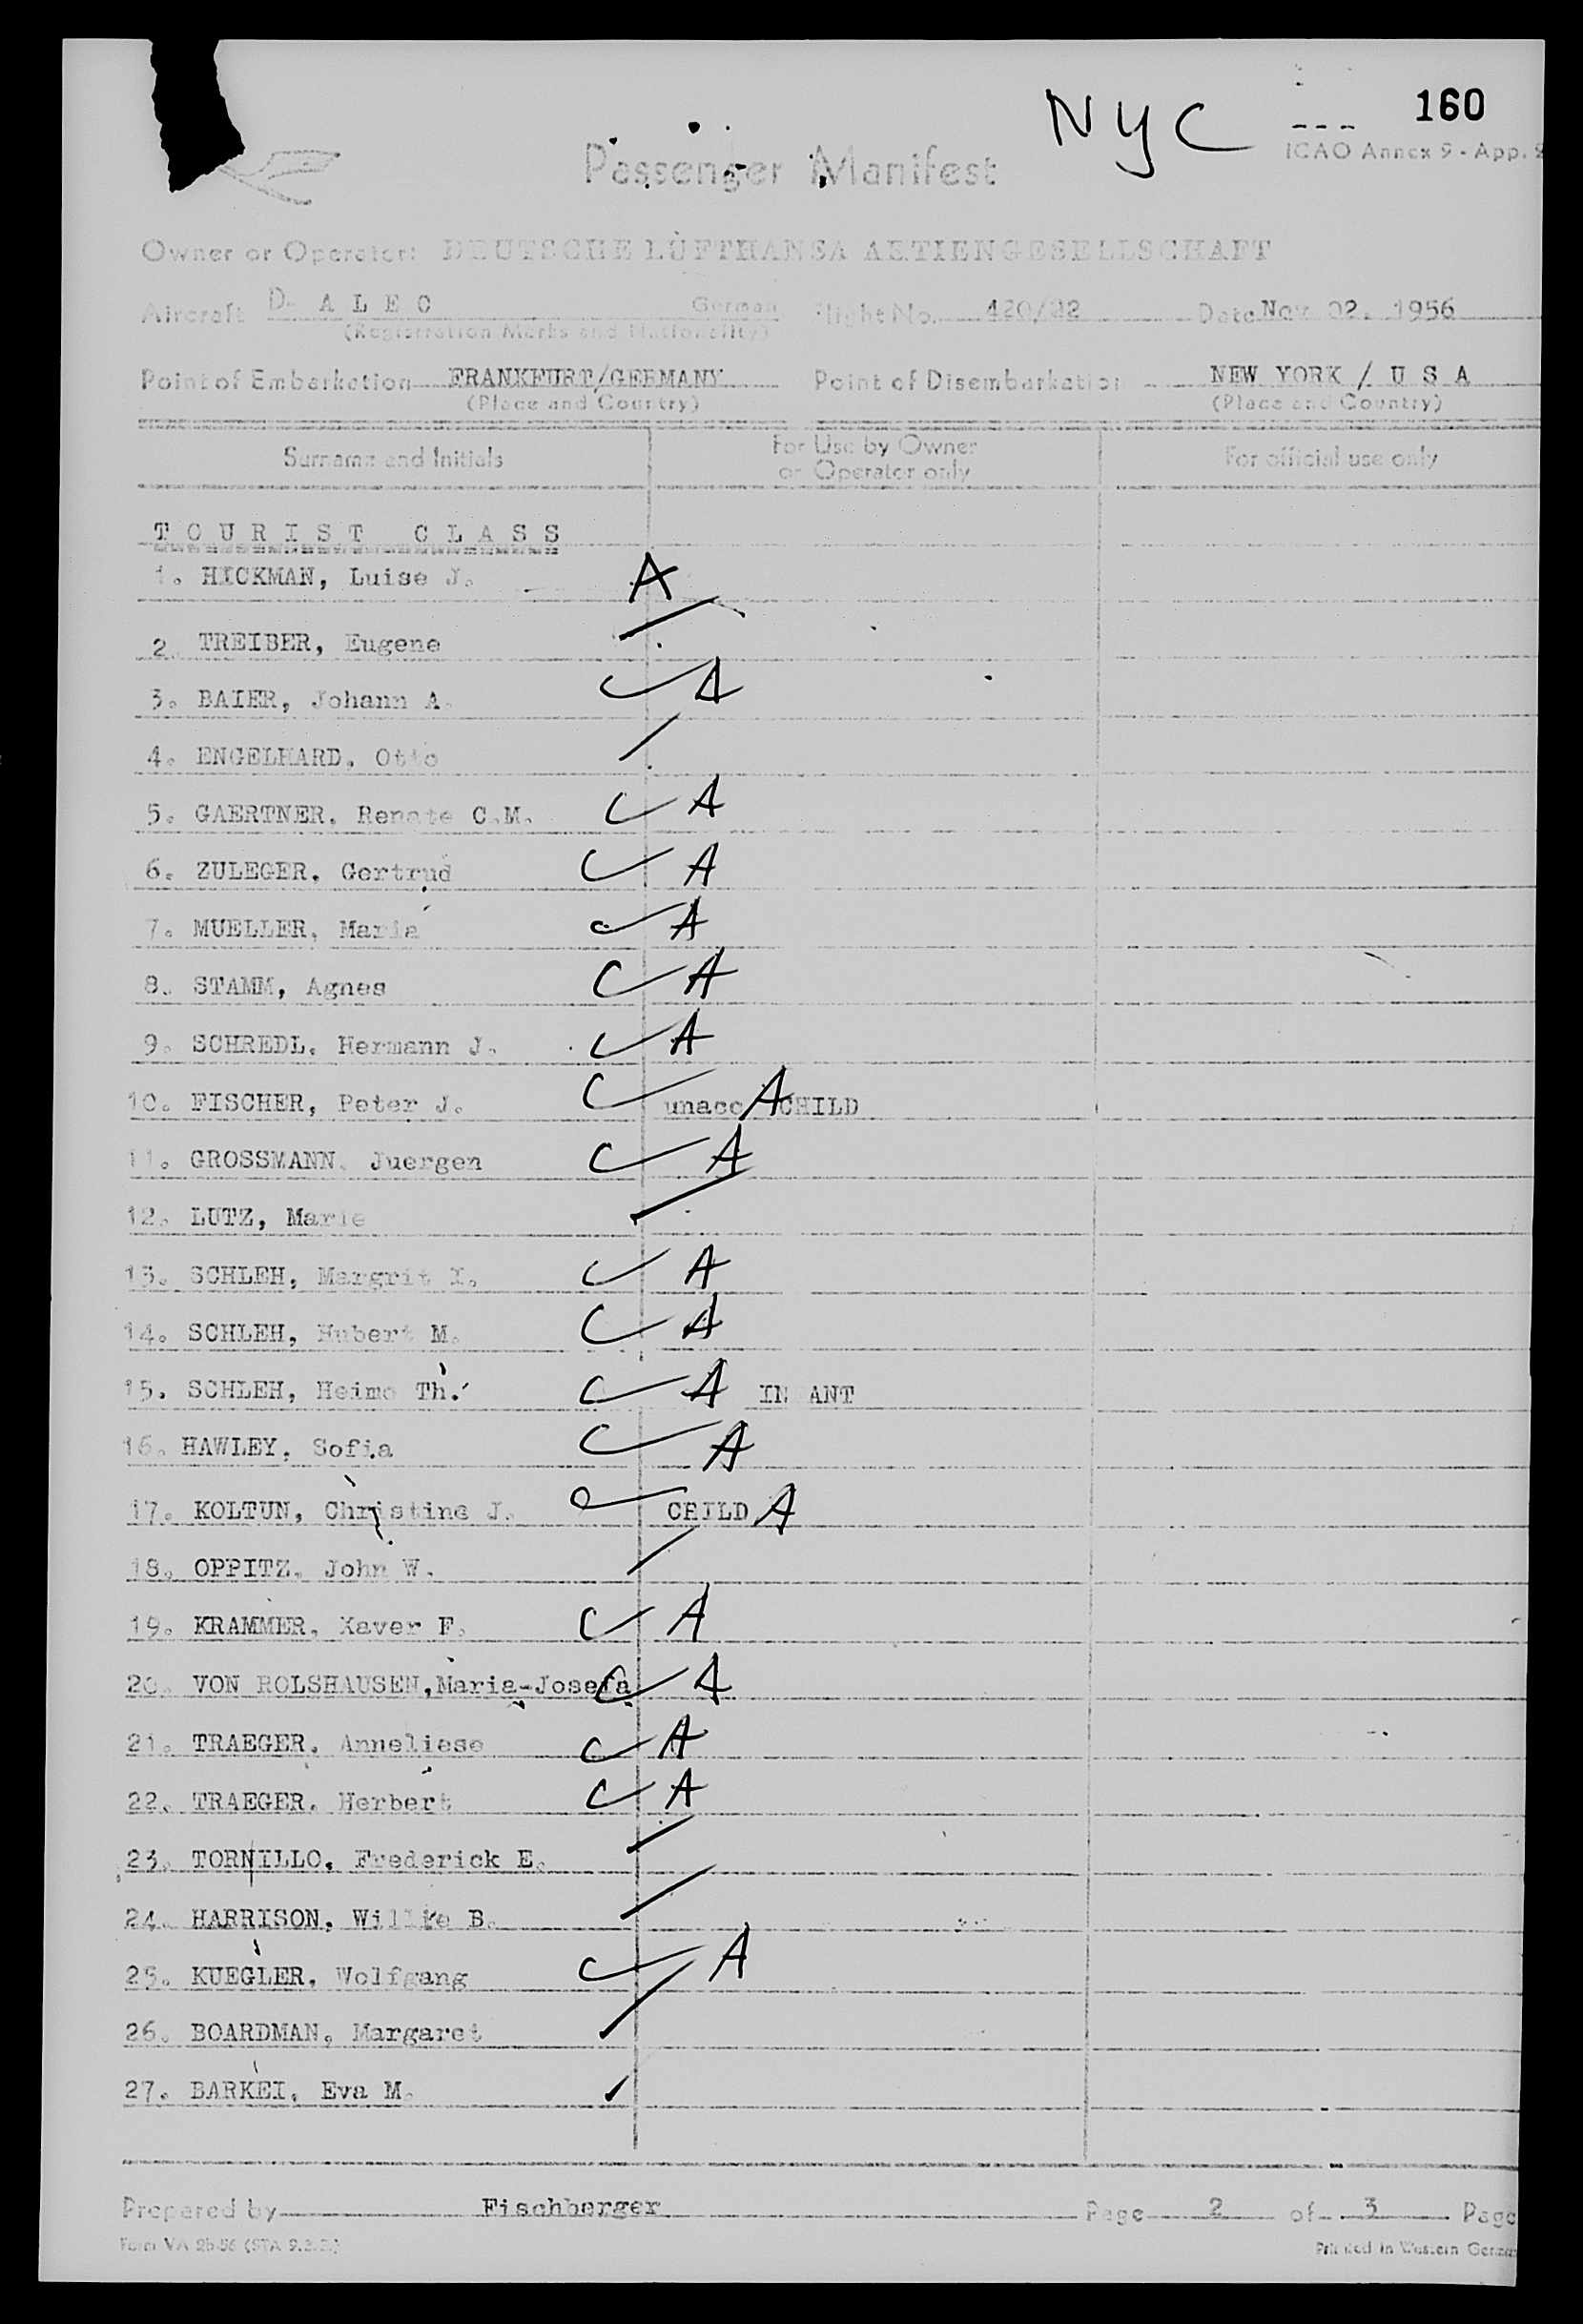 NYC
160
ICAO Annex 9 - App.
Passenger Manifest
Owner or Operator: DEUTSCHE LUFTHANSA AKTIENGESELLSCHAFT
Aircraft D- A L E C German Flight No. 420/ Date Nov 02. 1956
(Registration Marks and Nationality)
Point of Embarkation FRANKFURT/GERMANY Point of Disembarkation NEW YORK / U S A
(Place and Country) (Place and Country)
Surname and Initials For Use by Owner or Operator only For official use only
T O U R I S T C L A S S
1. HICKMAN, Luise J. A
2. TREIBER, Eugene
3. BAIER, Johann A. A
4. ENGELHARD, Otto
5. GAERTNER, Renate C.M. A
6. ZULEGER, Gertrud A
7. MUELLER, Maria A
8. STAMM, Agnes A
9. SCHREDL, Hermann J. A
10. FISCHER, Peter J. unacc A CHILD
11. GROSSMANN, Juergen A
12. LUTZ, Marie
13. SCHLEH, Margrit I. A
14. SCHLEH, Hubert M. A
15. SCHLEH, Heimo Th. A IN ANT
16. HAWLEY, Sofia A
17. KOLTUN, Christine J. CHILD A
18. OPPITZ, John W.
19. KRAMMER, Xaver F. A
20. VON ROLSHAUSEN, Maria-Josefa A
21. TRAEGER, Anneliese A
22. TRAEGER, Herbert A
23. TORNILLO, Frederick E.
24. HARRISON, Willie B.
25. KUEGLER, Wolfgang A
26. BOARDMAN, Margaret
27. BARKEI, Eva M.
Prepared by Fischberger Page 2 of 3 Page
Form VA
Printed in Western